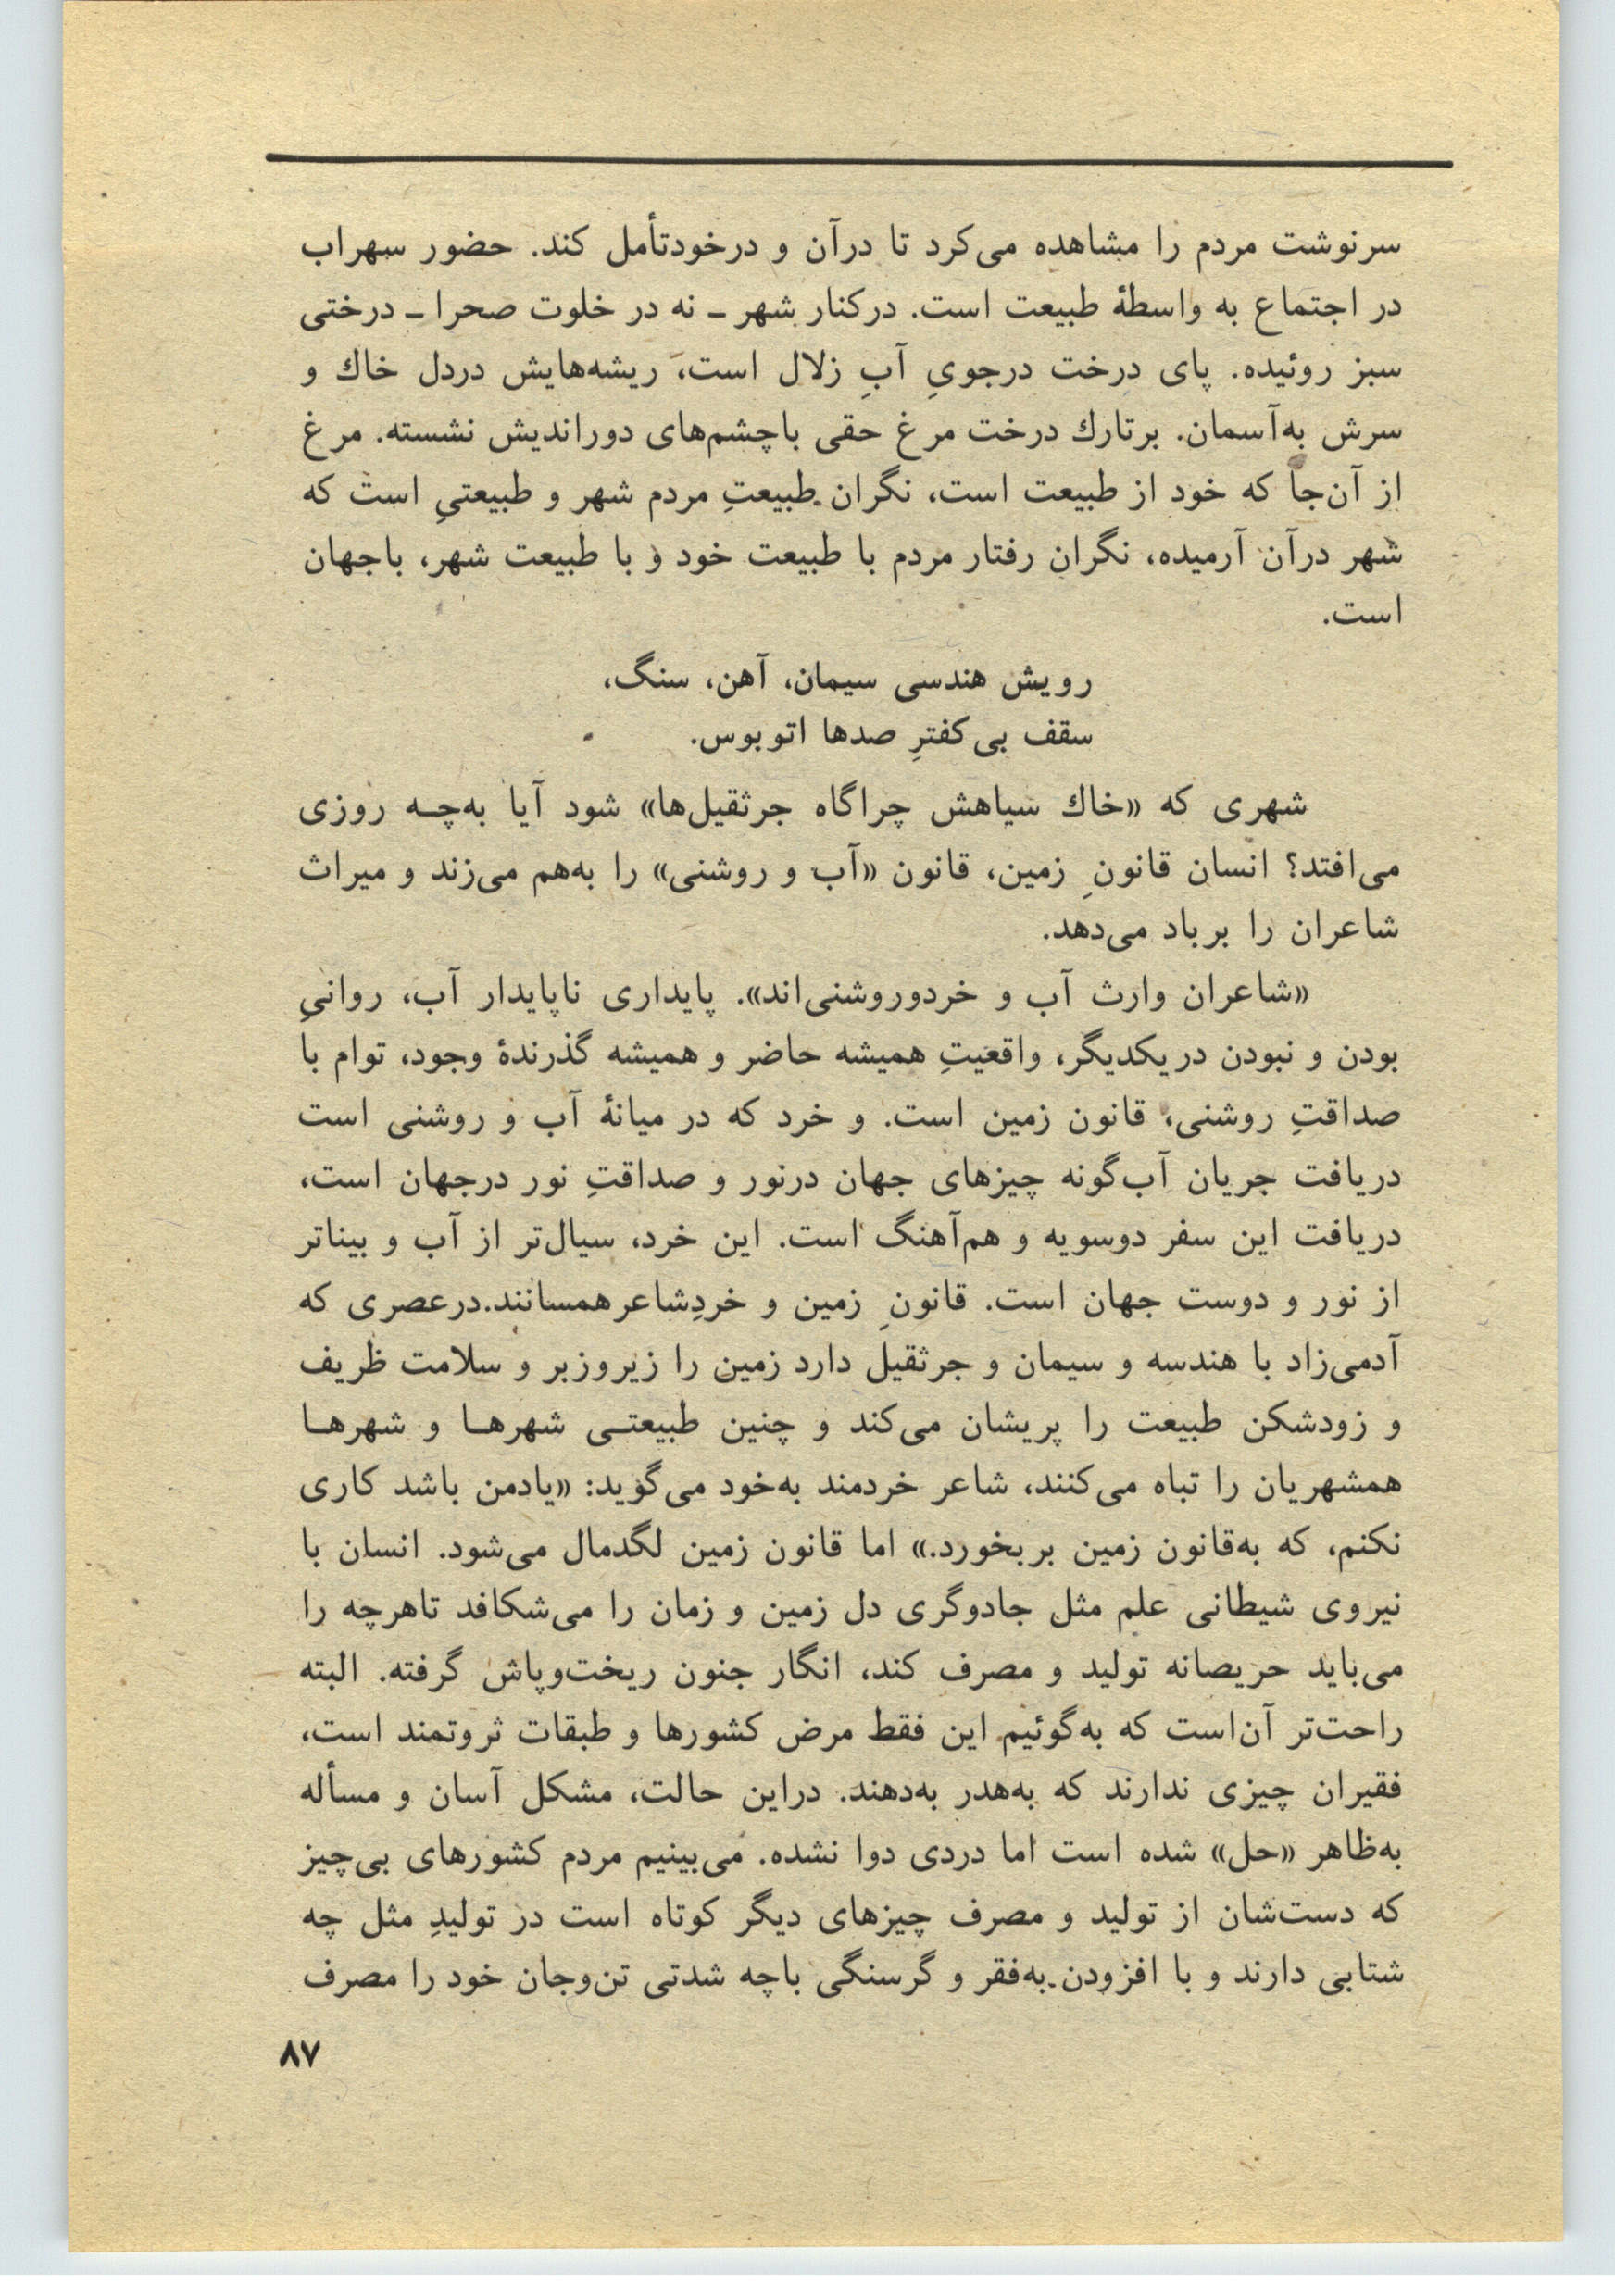 سرنوشت مردم را مشاهده می‌کرد تا درآن و درخودتأمل کند. حضور سهراب
در اجتماع به واسطهٔ طبیعت است. درکنار شهر ـ نه در خلوت صحرا ـ درختی
سبز روئیده. پای درخت درجویِ آبِ زلال است، ریشه‌هایش دردل خاك و
سرش به‌آسمان. برتارك درخت مرغ حقی باچشم‌های دوراندیش نشسته. مرغ
از آن‌جا که خود از طبیعت است، نگران طبیعتِ مردم شهر و طبیعتیِ است که
شهر درآن آرمیده، نگران رفتار مردم با طبیعت خود و با طبیعت شهر، باجهان
است.
رویش هندسی سیمان، آهن، سنگ،
سقف بی‌کفترِ صدها اتوبوس.
شهری که «خاك سیاهش چراگاه جرثقیل‌ها» شود آیا به‌چـه روزی
می‌افتد؟ انسان قانونِ زمین، قانون «آب و روشنی» را به‌هم می‌زند و میراث
شاعران را برباد می‌دهد.
«شاعران وارث آب و خردوروشنی‌اند». پایداری ناپایدار آب، روانیِ
بودن و نبودن دریکدیگر، واقعیتِ همیشه حاضر و همیشه گذرندهٔ وجود، توام با
صداقتِ روشنی، قانون زمین است. و خرد که در میانهٔ آب و روشنی است
دریافت جریان آب‌گونه چیزهای جهان درنور و صداقتِ نور درجهان است،
دریافت این سفر دوسویه و هم‌آهنگ است. این خرد، سیال‌تر از آب و بیناتر
از نور و دوست جهان است. قانونِ زمین و خردِشاعرهمسانند.درعصری که
آدمی‌زاد با هندسه و سیمان و جرثقیل دارد زمین را زیروزبر و سلامت ظریف
و زودشکن طبیعت را پریشان می‌کند و چنین طبیعتـی شهرهـا و شهرهـا
همشهریان را تباه می‌کنند، شاعر خردمند به‌خود می‌گوید: «یادمن باشد کاری
نکنم، که به‌قانون زمین بربخورد.» اما قانون زمین لگدمال می‌شود. انسان با
نیروی شیطانی علم مثل جادوگری دل زمین و زمان را می‌شکافد تاهرچه را
می‌یابد حریصانه تولید و مصرف کند، انگار جنون ریخت‌وپاش گرفته. البته
راحت‌تر آن‌است که به‌گوئیم این فقط مرض کشورها و طبقات ثروتمند است،
فقیران چیزی ندارند که به‌هدر به‌دهند. دراین حالت، مشکل آسان و مسأله
به‌ظاهر «حل» شده است اما دردی دوا نشده. می‌بینیم مردم کشورهای بی‌چیز
که دست‌شان از تولید و مصرف چیزهای دیگر کوتاه است در تولیدِ مثل چه
شتابی دارند و با افزودن به‌فقر و گرسنگی باچه شدتی تن‌وجان خود را مصرف
۸۷